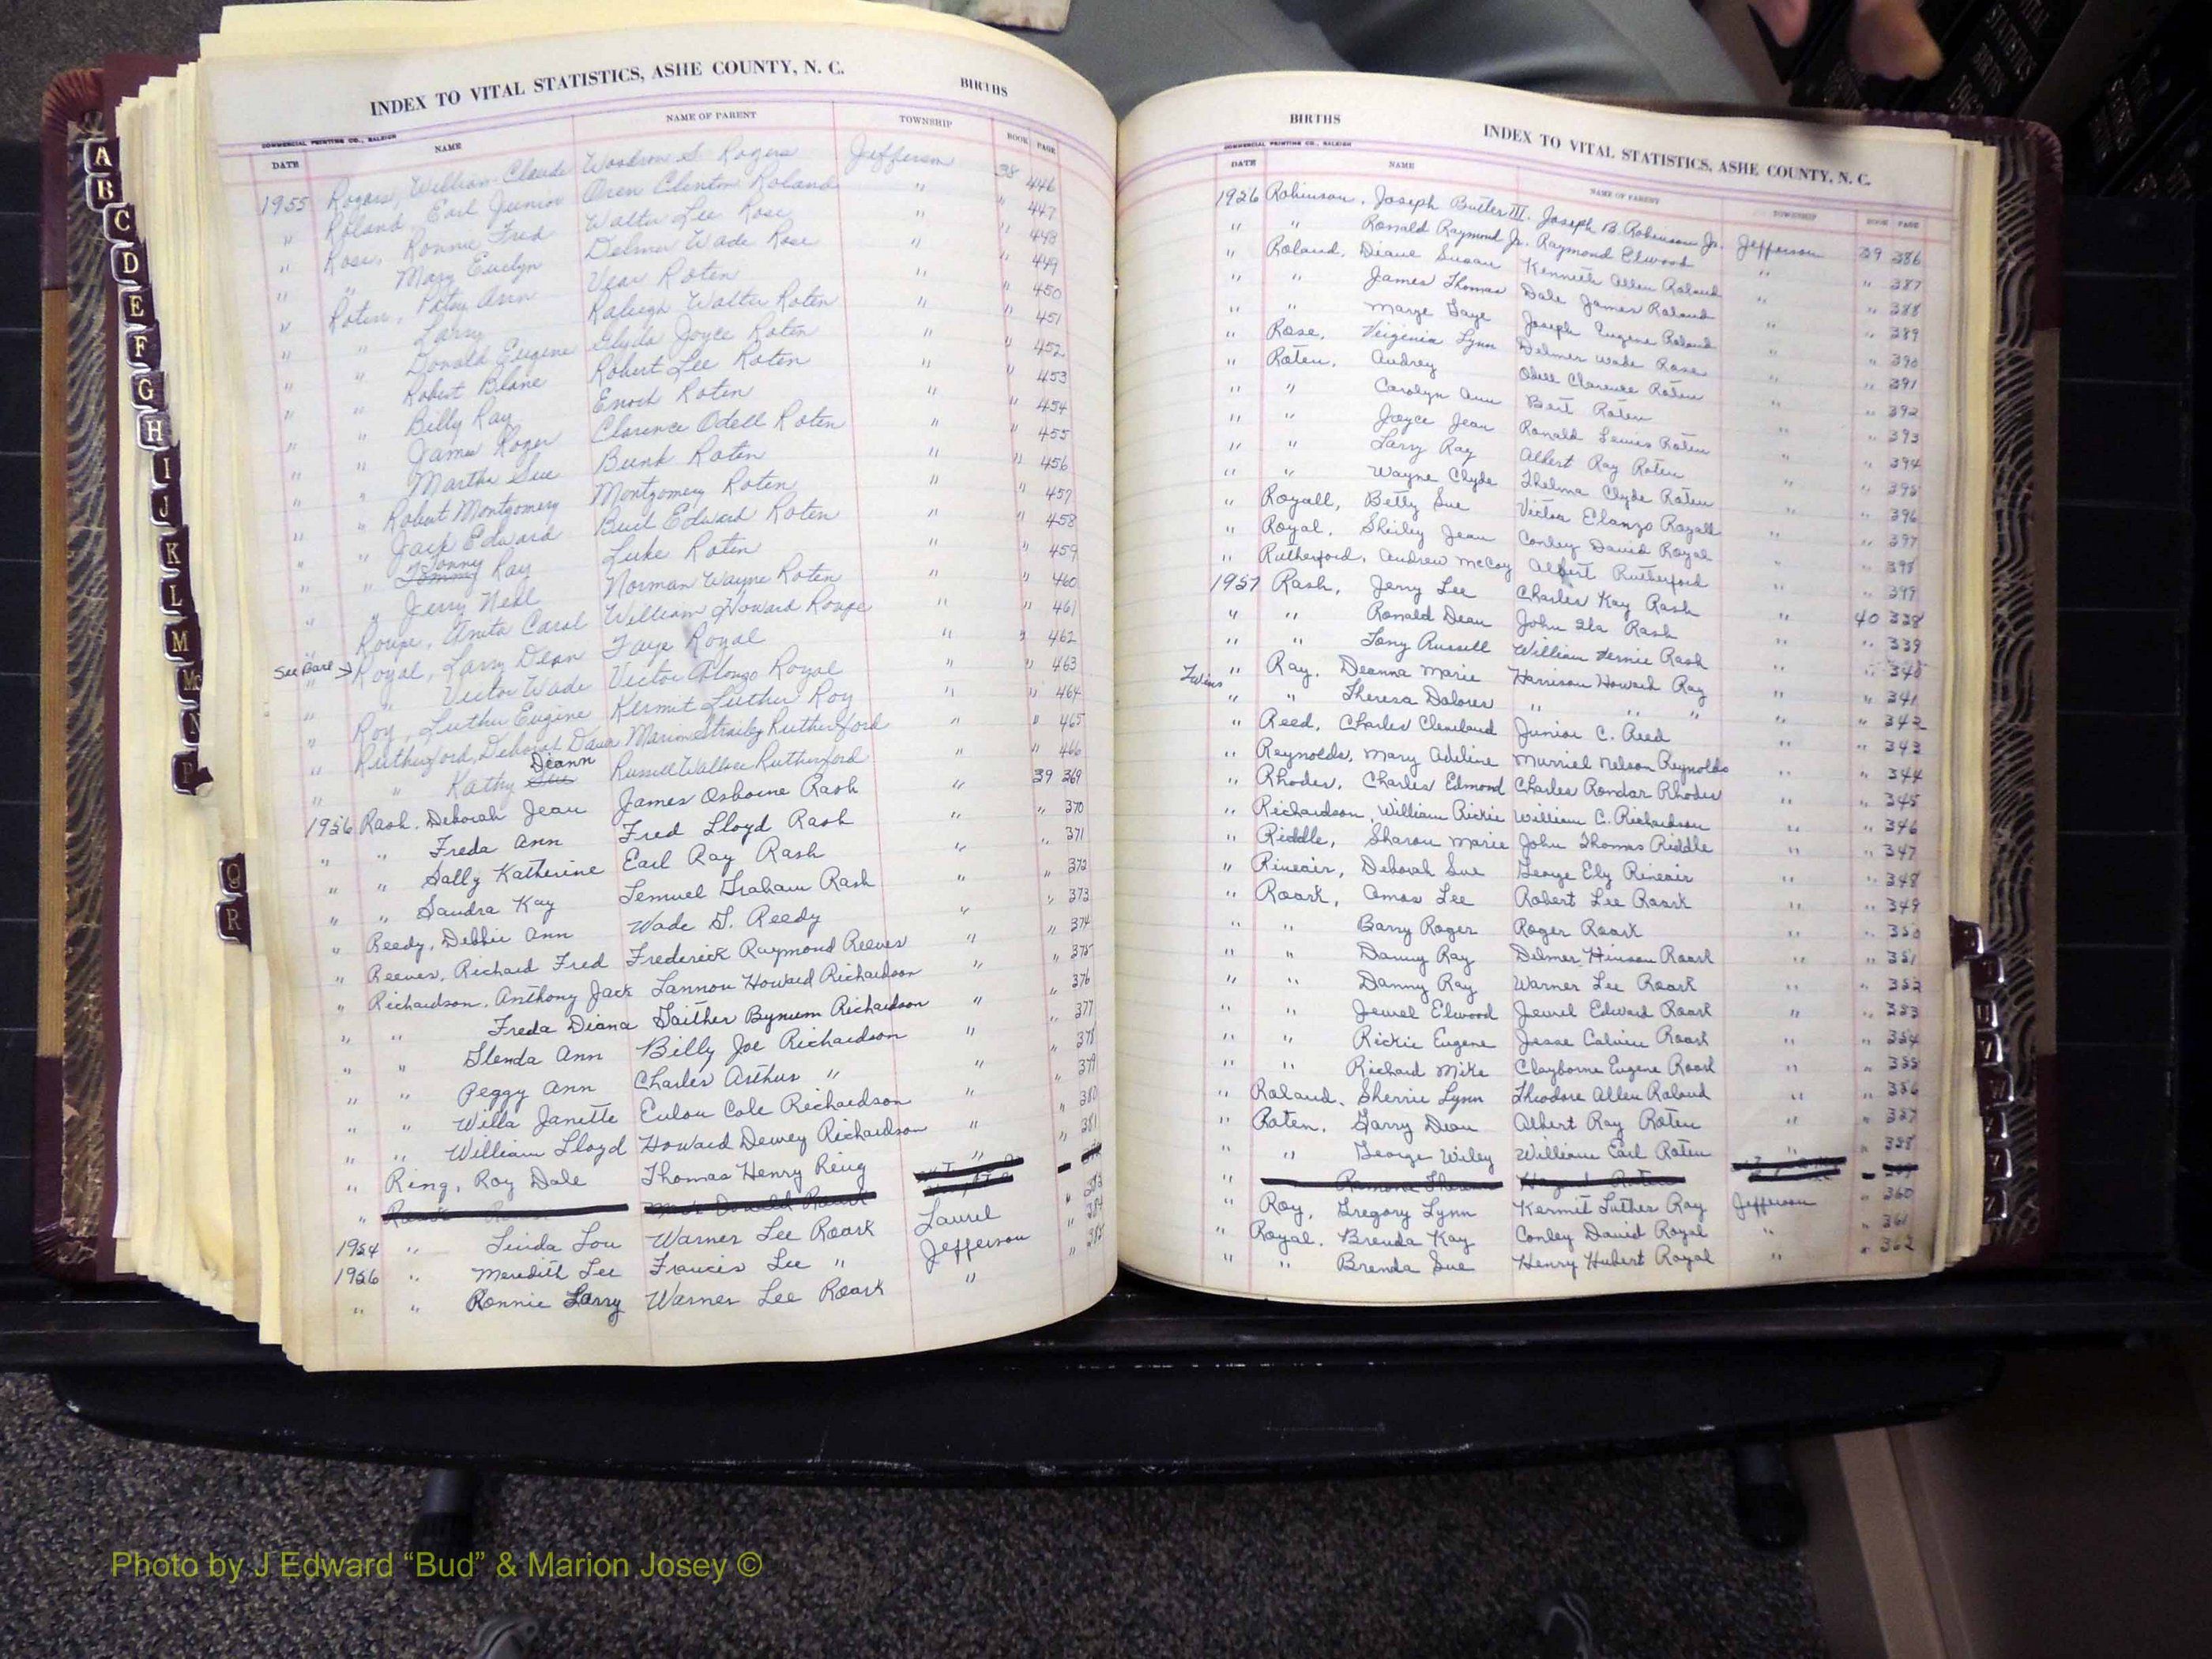 INDEX TO VITAL STATISTICS, ASHE COUNTY, N. C. BIRTHS
COMMERCIAL PRINTING CO., RALEIGH
DATE NAME NAME OF PARENT TOWNSHIP BOOK PAGE
1955 Rogers, William Claude Woodrow S. Rogers Jefferson 38 446
" Roland, Earl Junior Oren Clinton Roland " " 447
" Rose, Ronnie Fred Walter Lee Rose " " 448
" " Mary Evelyn Delmer Wade Rose " " 449
" Roten, Patsy Ann Vear Roten " " 450
" " Larry Raleigh Walter Roten " " 451
" " Donald Eugene Clyda Joyce Roten " " 452
" " Robert Blane Robert Lee Roten " " 453
" " Billy Ray Enoch Roten " " 454
" " James Roger Clarence Odell Roten " " 455
" " Martha Sue Bunk Roten " " 456
" " Robert Montgomery Montgomery Roten " " 457
" " Jack Edward Burl Edward Roten " " 458
" " Tommy Jonny Ray Luke Roten " " 459
" " Jerry Neal Norman Wayne Roten " " 460
" Roupe, Anita Carol William Howard Roupe " " 461
See Bare → Royal, Larry Dean Faye Royal " " 462
" " Victor Wade Victor Alonzo Royal " " 463
" Roy, Luther Eugine Kermit Luther Roy " " 464
" Rutherford, Deborah Dawn Marion Rutherford " " 465
" " Kathy Sue Deann Russell Wallace Rutherford " " 466
1956 Rash, Deborah Jean James Osborne Rash " 39 369
" " Freda Ann Fred Lloyd Rash " " 370
" " Sally Katherine Earl Ray Rash " " 371
" " Sandra Kay Lemuel Graham Rash " " 372
" Reedy, Debbie Ann Wade G. Reedy " " 373
" Reeves, Richard Fred Frederick Raymond Reeves " " 374
" Richardson, Anthony Jack Lannon Howard Richardson " " 375
" " Freda Diana Gaither Bynum Richardson " " 376
" " Glenda Ann Billy Joe Richardson " " 377
" " Peggy Ann Charles Arthur " " " 378
" " Willa Janette Eulon Cole Richardson " " 379
" " William Lloyd Howard Dewey Richardson " " 380
" Ring, Roy Dale Thomas Henry Ring " " 381
" Roark Donald Roark
1954 " Linda Lou Warner Lee Roark Laurel " 383
1956 " Meredith Lee Francis Lee " Jefferson " 384
" " Ronnie Larry Warner Lee Roark " " 385
BIRTHS INDEX TO VITAL STATISTICS, ASHE COUNTY, N. C.
COMMERCIAL PRINTING CO., RALEIGH
DATE NAME NAME OF PARENT TOWNSHIP BOOK PAGE
1956 Robinson, Joseph Butler III. Joseph B. Robinson Jr. Jefferson 39 386
" " Ronald Raymond Jr. Raymond Elwood " " 387
" Roland, Diane Susan Kenneth Allen Roland " " 388
" " James Thomas Dale James Roland " " 389
" " Marge Faye Joseph Eugene Roland " " 390
" Rose, Virginia Lynn Delmer Wade Rose " " 391
" Roten, Audrey Odell Clarence Roten " " 392
" " Carolyn Ann Bert Roten " " 393
" " Joyce Jean Ronald Lewis Roten " " 394
" " Larry Ray Albert Ray Roten " " 395
" " Wayne Clyde Thelma Clyde Roten " " 396
" Royall, Betty Sue Victor Elanzo Royall " " 397
" Royal, Shirley Jean Conley David Royal " " 398
" Rutherford, Andrew McCoy Albert Rutherford " " 399
1957 Rash, Jerry Lee Charles Kay Rash " 40 338
" " Ronald Dean John Ila Rash " " 339
" " Tony Russell William Vernie Rash " " 340
Twins " Ray, Deanna Marie Harrison Howard Ray " " 341
" " Theresa Dolores " " " " " 342
" Reed, Charles Cleveland Junior C. Reed " " 343
" Reynolds, Mary Adeline Murriel Nelson Reynolds " " 344
" Rhodes, Charles Edmond Charles Rondar Rhodes " " 345
" Richardson, William Rickie William C. Richardson " " 346
" Riddle, Sharon Marie John Thomas Riddle " " 347
" Rineair, Deborah Sue George Ely Rineair " " 348
" Roark, Amos Lee Robert Lee Roark " " 349
" " Barry Roger Roger Roark " " 350
" " Danny Ray Delmer Hinson Roark " " 351
" " Danny Ray Warner Lee Roark " " 352
" " Jewel Elwood Jewel Edward Roark " " 353
" " Rickie Eugene Jesse Calvin Roark " " 354
" " Richard Mike Clayborne Eugene Roark " " 355
" Roland, Sherrie Lynn Theodore Allen Roland " " 356
" Roten, Garry Dean Albert Ray Roten " " 357
" " George Wiley William Earl Roten " " 358
" Roy, Gregory Lynn Kermit Luther Roy Jefferson " 360
" Royal, Brenda Kay Conley David Royal " " 361
" " Brenda Sue Henry Hubert Royal " " 362
A
B
C
D
E
F
G
H
I
J
K
L
M
Mc
N
P
Q
R
U
V
W
Y
Z
Photo by J Edward “Bud” & Marion Josey ©